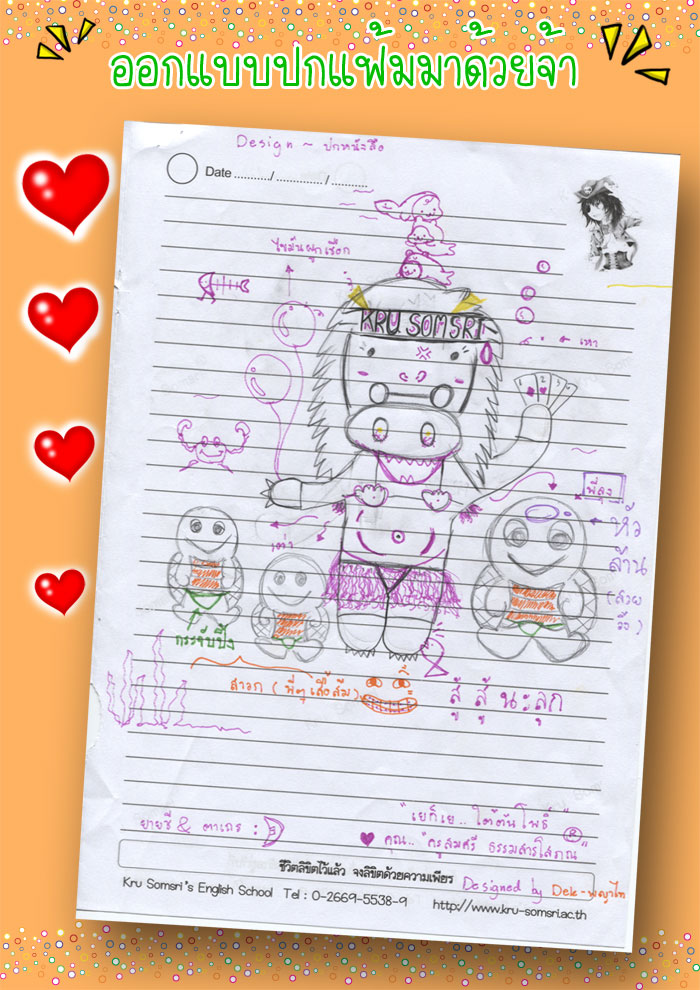 ออกแบบปกแฟ้มมาด้วยจ้า
Design ~ ปกหนังสือ
Date .........../ ............... / ...........
ไขมันผูกเชือก
KRU SOMSRI
เหา
พี่ตุ๋ง
หัว
ล้าน
(สวย
จัง)
กระจับปิ้ง
สาวก (พี่ตุ่เสื้อส้ม)
สู้ สู้ นะลุก
ยายชี & ตาเถร :
"เย้ก็เย.. ใต้ต้นโพธิ์" ®
คุณ.. "ครูสมศรี ธรรมสารโสภณ"
ชีวิตลิขิตไว้แล้ว จงลิขิตด้วยความเพียร
Designed by Dek-พญาไท
Kru Somsri's English School Tel : 0-2669-5538-9 http://www.kru-somsri.ac.th